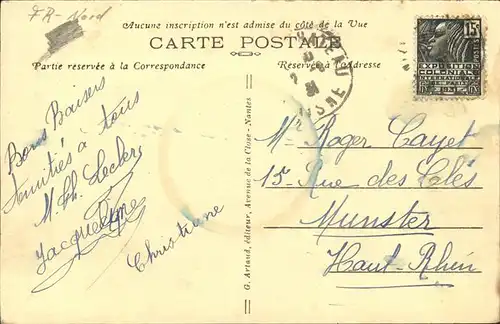 FR-Nord
Aucune inscription n'est admise du côté de la Vue
CARTE POSTALE
Partie réservée à la Correspondance
Réservé à l'Adresse
15c
POSTES
EXPOSITION
COLONIALE
INTERNATIONALE
PARIS
1931
EAU
AISNE
31
Bons Baisers
Amitiés à tous
M Ch. Leclerc
Jacqueline
Christiane
G. Artaud, éditeur, Avenue de la Close - Nantes
Mr Roger Cayet
15 Rue des Clés
Munster
Haut-Rhin